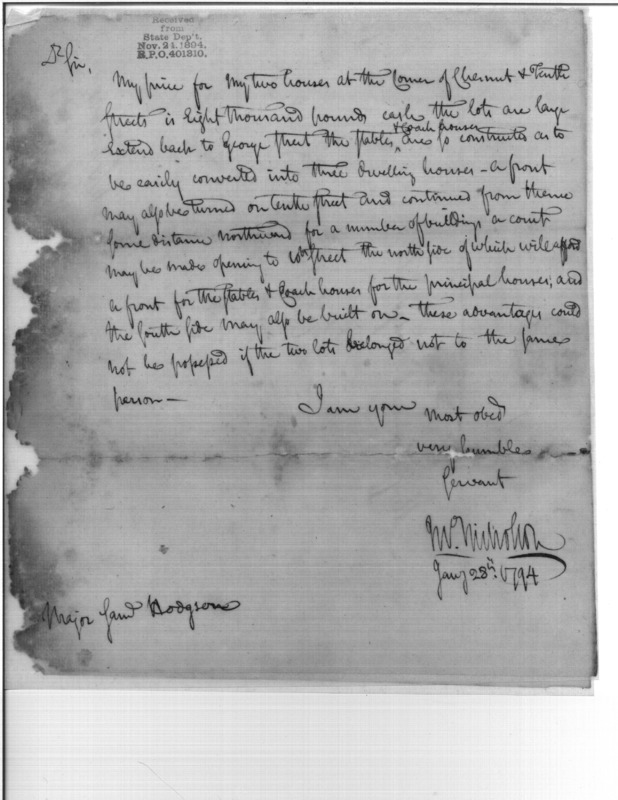 Received
from
State Dep't.
Nov. 21. 1894.
R.P.O. 401310.
Dr Sir,
My price for my two houses at the Corner of Chesnut & Tenth
Streets is Eight thousand pounds cash the lots are large
& Coach houses
Extend back to George Street the Stables are so constructed as to
be easily converted into three dwelling houses - a front
may also be turned on tenth Street and continued from thence
some distance northward for a number of buildings a court
may be made opening to 10th Street the north side of which will afford
a front for the Stables & Coach houses for the principal houses, and
the South side may also be built on - these advantages could
not be possessed if the two lots belonged not to the same
person -
I am your most obed
very humble
Servant
Jno. Nicholson
Jany 28th. 1794
Major Saml Hodgson